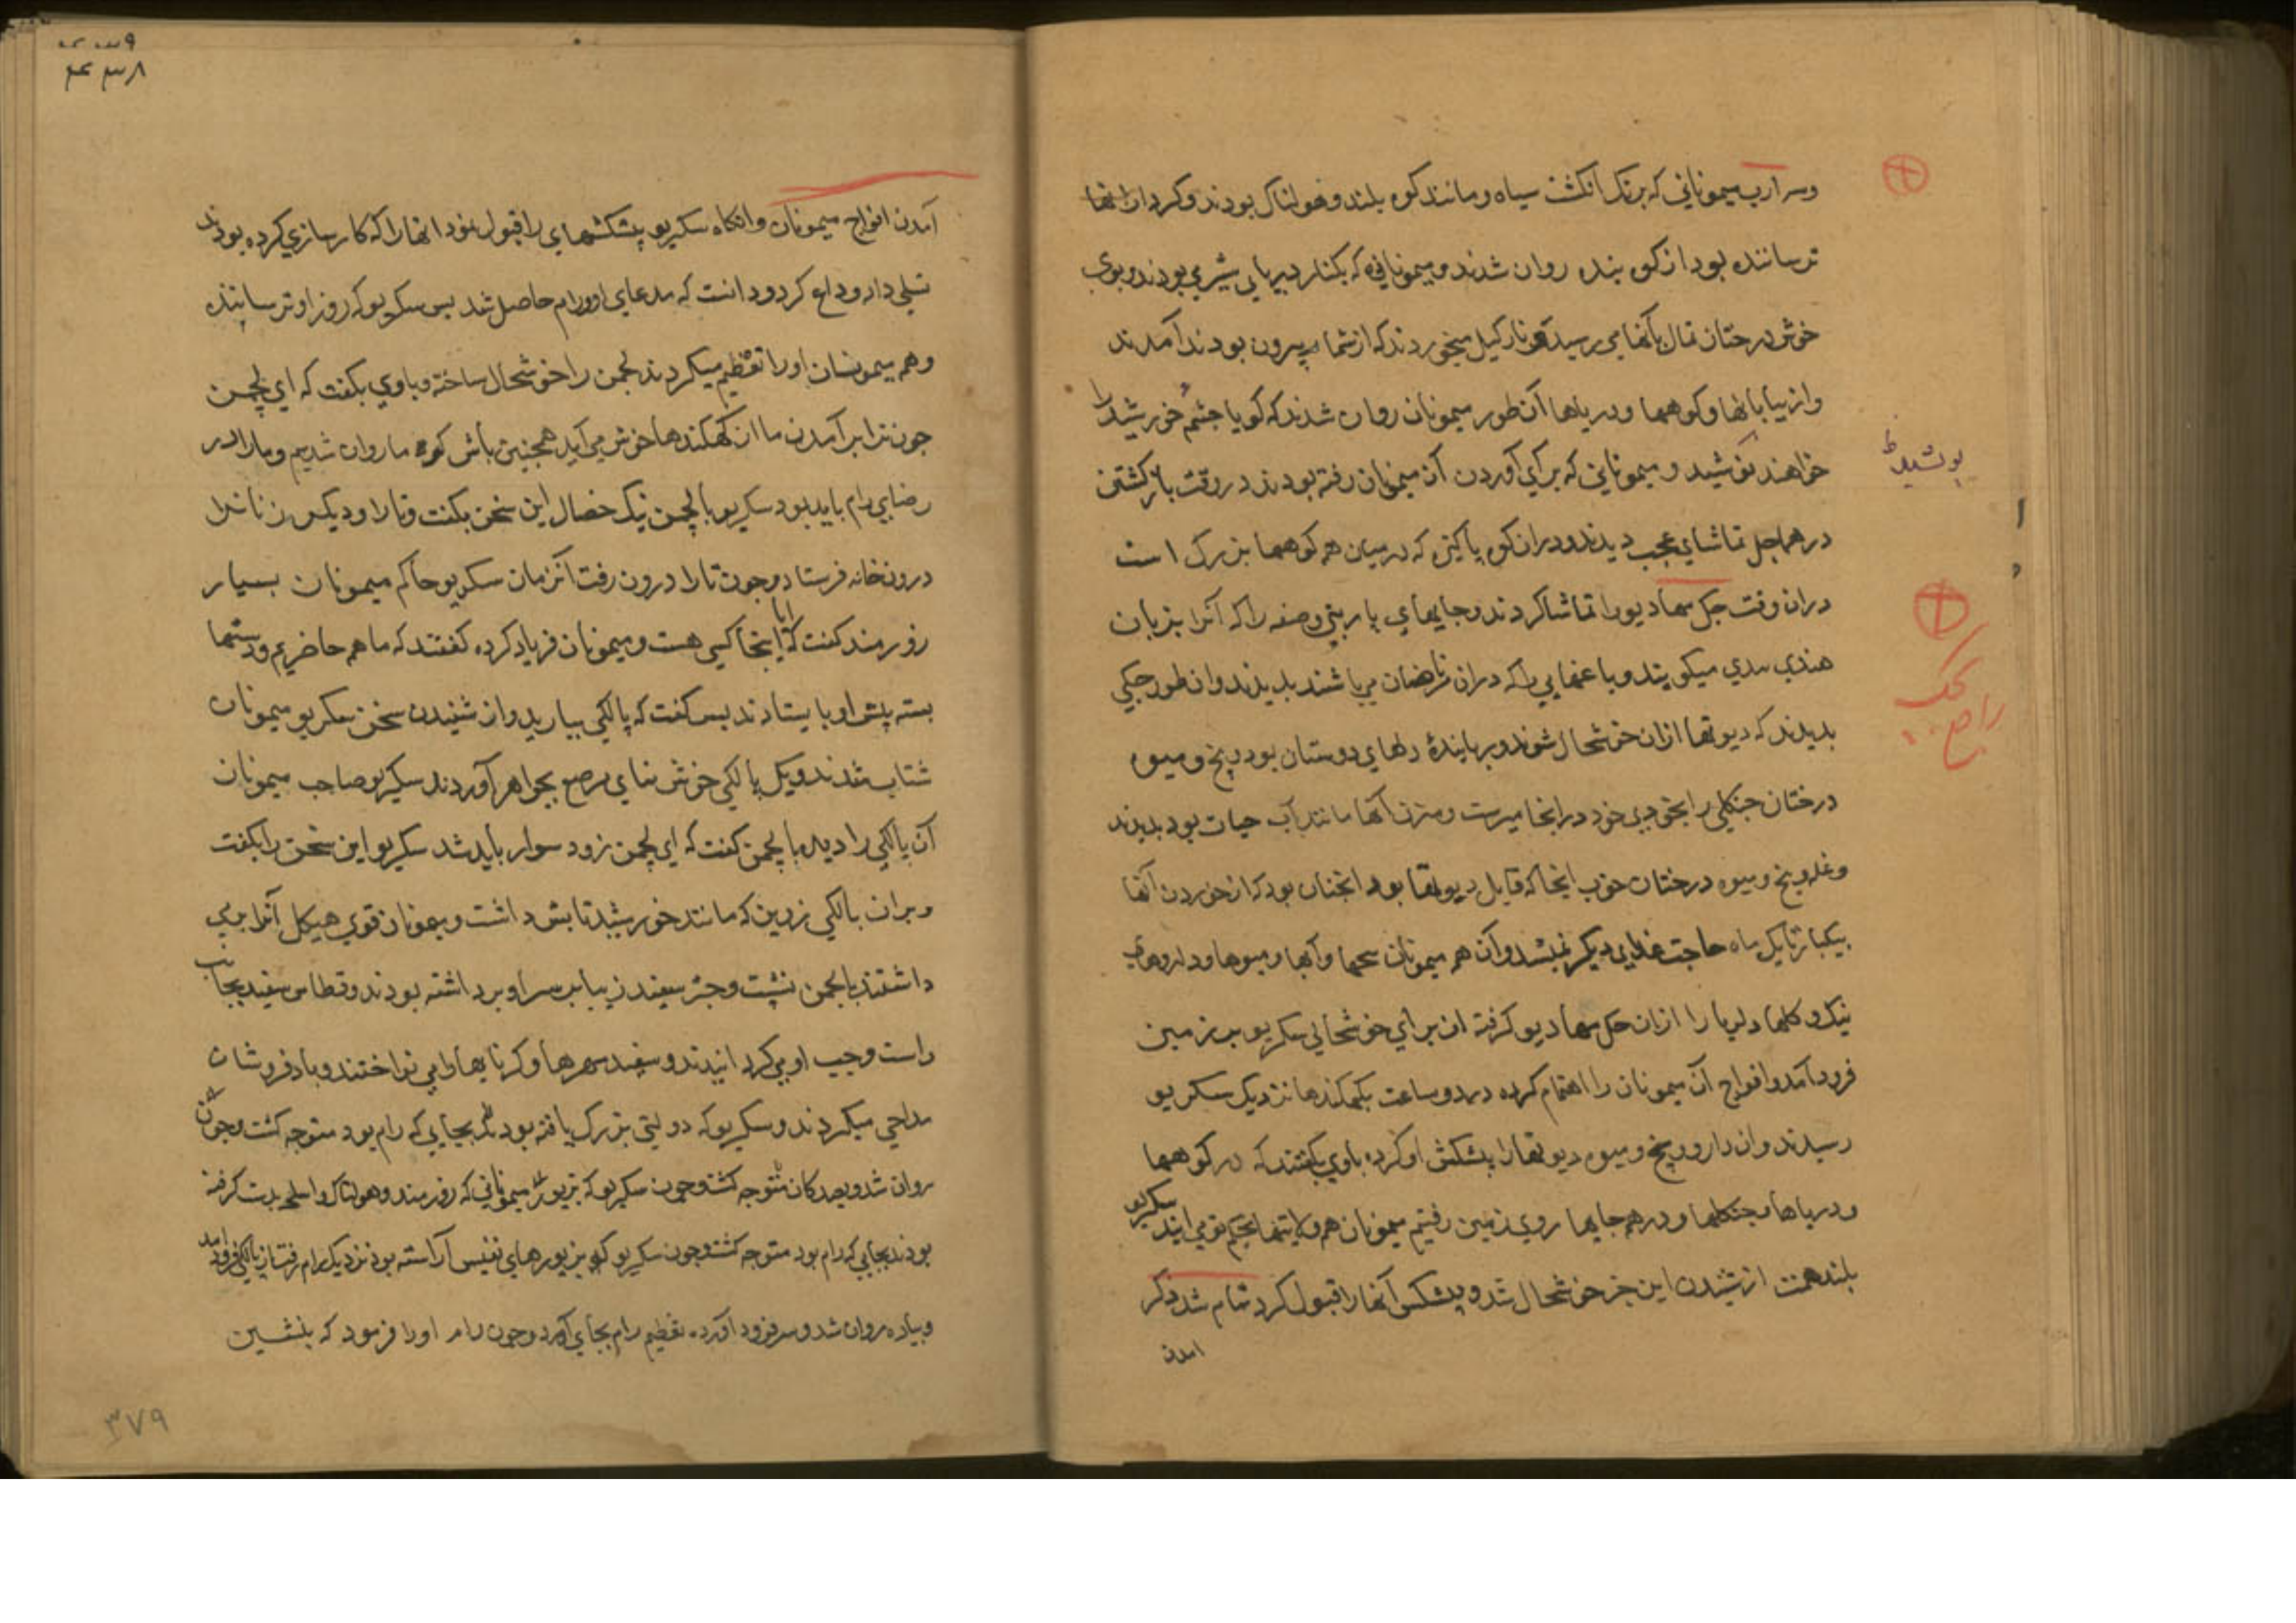 وسه ارب میمونانی که برنک انکشت سیاه و مانند کوه بلند و هولناک بودند و کردار انها
ترساننده بود از کوه بنده روان شدند و میمونانی که بکنار دریای شیری بودند و بوی
خوش درختان تمال بآنها می رسید و نارکیل میخوردند که از شما بیرون بودند آمدند
واز بیابانها و کوهها و دریاها آن طور میمونان روان شدند که کویا چشم خورشید را
خواهند نوشید و میمونانی که برای آوردن آن میمونان رفته بودند در وقت باز کشتن
پوشید
در هماجل تماشای عجب دیدند و دران کوه پاکیزه که در میان همه کوهها بزرک است
دران وقت جک مهادیو را تماشا کردند و جایهای پاربتی و صفه را که آنرا بزبان
هندی بیدی میکویند و باغهایی را که دران می باشند بدیدند و ان طور جکی
بدیدند که دیوتها ازان خوشحال شوند و رباینده دلهای دوستان بود و بیخ و میوه
درختان جنکلی را بخودی خود درانجا میرست و مزه آنها مانند آب حیات بود بدیدند
و غله و بیخ و میوه درختان خوب اینجا که قابل دیوتها بود انچنان بود که از خوردن آنها
بیکبار تا یک ماه حاجت غذای دیکر نمیشد و آن همه میمونان بیخها و آبها و میوها و داروهای
نیک و کلها دلربا را ازان جک مهادیو کرفته از برای خوشحالی سکریو بر زمین
فرود آمد و افواج آن میمونان را اهتمام کرده در دو ساعت بکهکندها نزدیک سکریو
رسیدند و ان دارو و بیخ و میوه دیوتها را پیشکش او کرده باوی بکفتند که در کوهها
و دریاها و جنکلها و در همه جایها روی زمین رفتیم میمونان همه ولایتها بحکم تو می ایند سکریو
بلند همت از شنیدن این خبر خوشحال شد و پیشکش آنها را قبول کرد تمام شد ذکر
امدن
۴۳۸
آمدن افواج میمونان وانکاه سکریو پیشکشهای را قبول نمود انها را که کارسازی کرده بودند
تسلی داد و وداع کرد و دانست که مدعای او و رام حاصل شد پس سکریو که روز او ترساننده
و همه میمونان او را تعظیم میکردند لچمن را خوشحال ساخته و باوی بکفت که ای لچمن
چون ترا برآمدن ما از کهکندها خوش می آید همچنین باش که ما روان شدیم و ما را در
رضای رام باید بود سکریو با لچمن نیک خصال این سخن بکفت و تارا و دیکر زنانرا
درون خانه فرستاد و چون تارا درون رفت آنزمان سکریو حاکم میمونان بسیار
زورمند کفت که آیا اینجا کسی هست و میمونان فریاد کرده کفتند که ما همه حاضریم و دستها
بسته پیش او بایستادند پس کفت که پالکی بیارید و از شنیدن سخن سکریو میمونان
شتاب شدند و یک پالکی خوش نمای مرصع بجواهر آوردند سکریو صاحب میمونان
آن پالکی را دیده با لچمن کفت که ای لچمن زود سوار باید شد سکریو این سخن را بکفت
و بران پالکی زرین که مانند خورشید تابش داشت و میمونان قوی هیکل آنرا بر می
داشتند با لچمن نشست و چتر سفید زیبا بر سر او برداشته بودند و قطاس سفید بجانب
راست و چپ او می کردانیدند و سفید مهرها و کرنایها را می نواختند و بادفروشان
مداحی میکردند و سکریو که دولتی بزرک یافته بود بجایی که رام بود متوجه کشت و چون
روان شد و بصد کان متوجه کشت و چون سکریو که میمونانی که زورمند و هولناک و اسلحه بدست کرفته
بودند بجایی که رام بود متوجه کشت و چون سکریو که بزیورهای نفیس آراسته بود نزدیک رام رفت از پالکی فرود آمد
و پیاده روان شد و سر فرود آورده تعظیم رام بجای آورد و چون رام او را فرمود که بنشین
۳۷۹